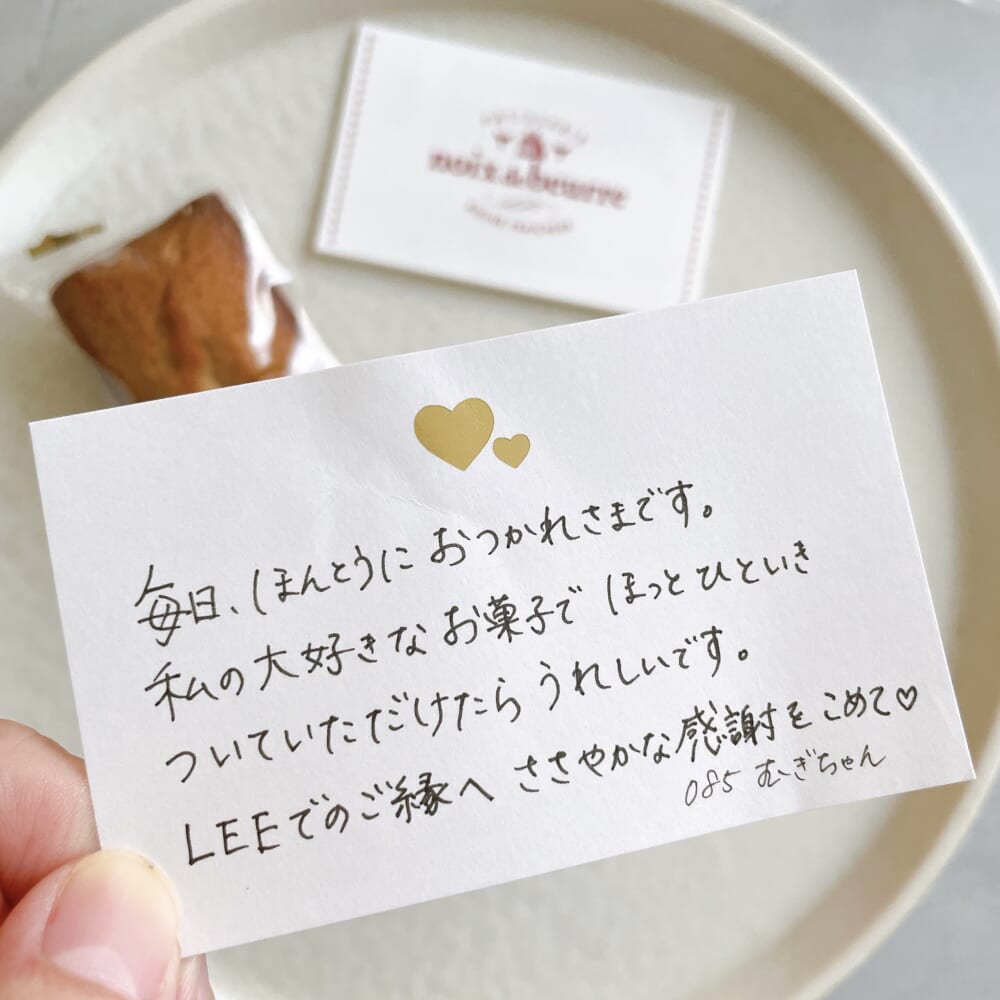 noix de beurre
毎日、ほんとうに おつかれさまです。
私の大好きな お菓子で ほっと ひといき
ついていただけたら うれしいです。
LEEでのご縁へ ささやかな感謝を こめて♡
085 むぎちゃん